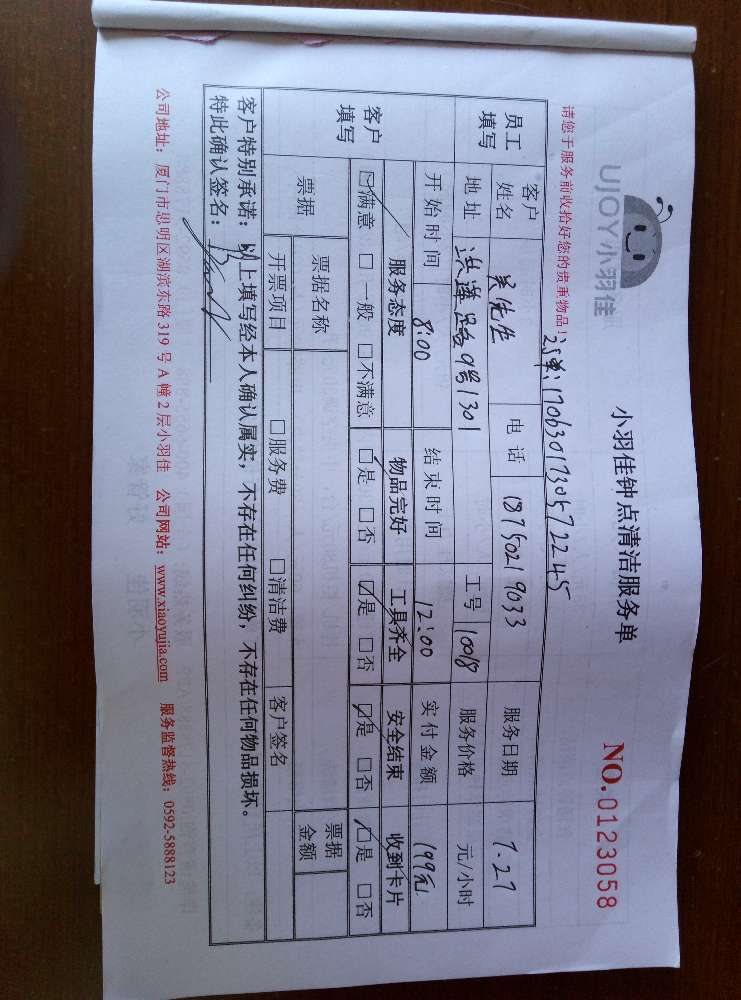 UJOY小羽佳
小羽佳钟点清洁服务单
NO.0123058
请您于服务前收拾好您的贵重物品!
订单:17063017305722245
员工填写 客户姓名 先生 电话 18750219033 服务日期 7.27
地址 洪莲 9号1301 工号 10018 服务价格 元/小时
开始时间 8:00 结束时间 12:00 实付金额 199元
客户填写 服务态度 物品完好 工具齐全 安全结束 收到卡片
☑满意 □一般 □不满意 ☑是 □否 ☑是 □否 ☑是 □否 ☑是 □否
票据 票据名称 票据金额
开票项目 □服务费 □清洁费 客户签名
客户特别承诺:以上填写经本人确认属实,不存在任何纠纷,不存在任何物品损坏。
特此确认签名:
公司地址:厦门市思明区湖滨东路 319 号 A 幢 2 层小羽佳 公司网站:www.xiaoyujia.com 服务监督热线:0592-5888123